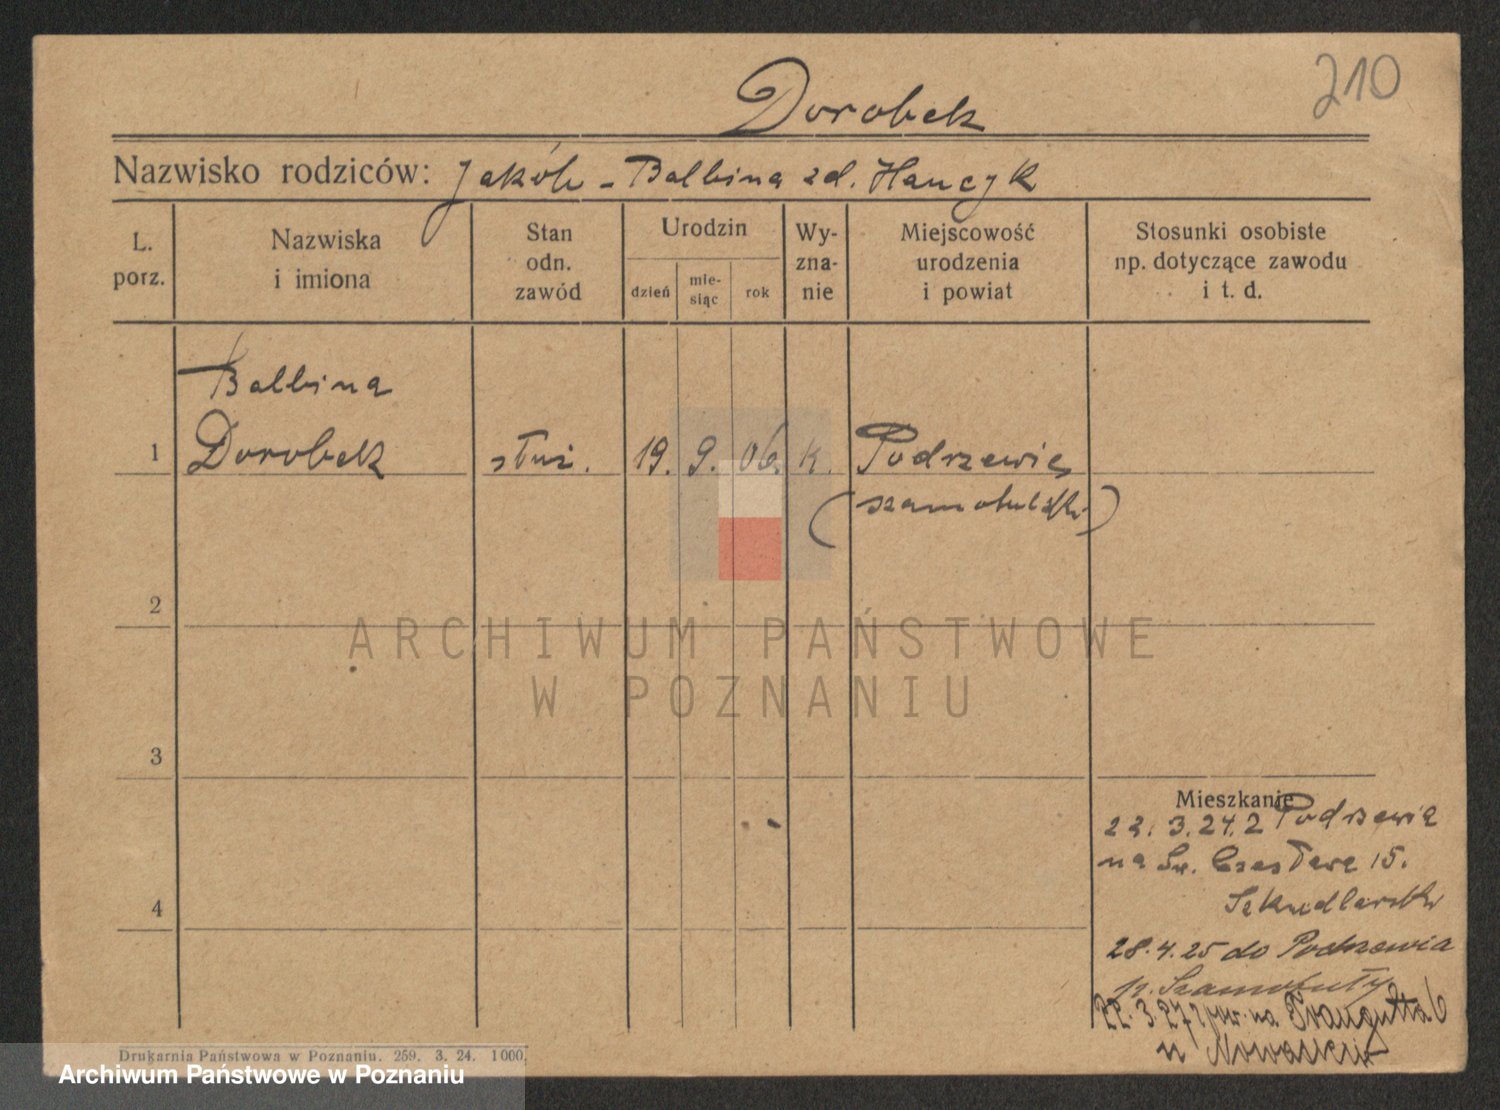 210
Dorobek
Nazwisko rodziców: Jakób - Balbina zd. Hanczyk
L. porz.
Nazwiska i imiona
Stan odn. zawód
Urodzin
dzień
mie-
siąc
rok
Wy-
zna-
nie
Miejscowość
urodzenia
i powiat
Stosunki osobiste
np. dotyczące zawodu
i t. d.
Balbina
1 Dorobek służ. 19. 9. 06. k. Podrzewie
(szamotulski)
2
ARCHIWUM PAŃSTWOWE
W POZNANIU
3
Mieszkanie
22. 3. 24. z Podrzewia
na Św. Czesława 15.
4
Szkudlarski
28.4.25 do Podrzewia
p. Szamotuły
22. 3. 27 z pow. na Traugutta 6
u Nowaków
Drukarnia Państwowa w Poznaniu. 259. 3. 24. 1000.
Archiwum Państwowe w Poznaniu